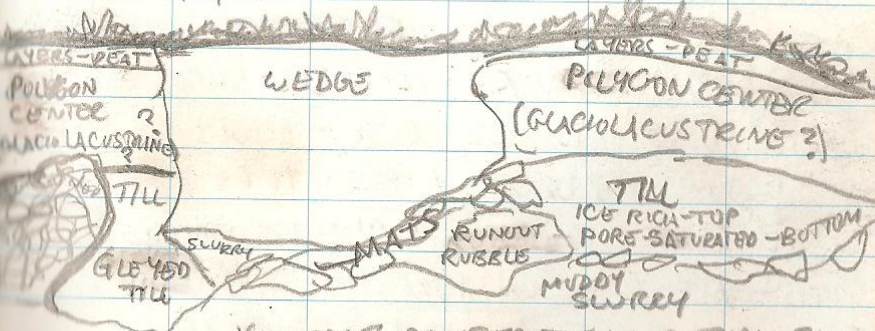 LAYERS-PEAT
POLYGON
CENTER ?
GLACIOLACUSTRINE
?
TILL
GLEYED
TILL
WEDGE
SLURRY
MATS
RUNOUT
RUBBLE
LAYERS-PEAT
POLYGON CENTER
(GLACIOLACUSTRINE?)
TILL
ICE RICH-TOP
PORE-SATURATED-BOTTOM
MUDDY
SLURRY